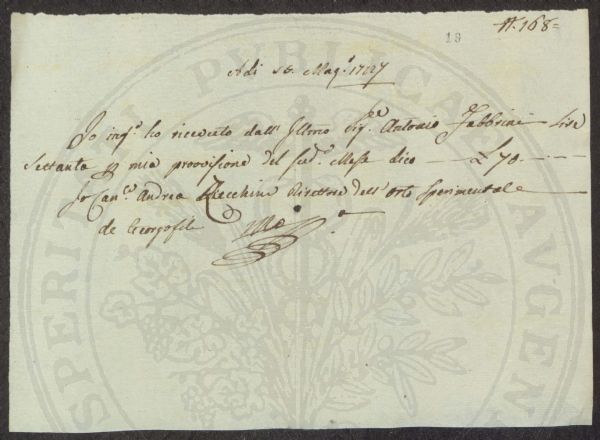 19
N. 168=
Adi Magº. 1787
Io infº ho ricevuto dall' Illmo Sigre. Antonio Fabbrini Lire
Settanta p mia provvisione del sudº. Mese dico — £ 70. —
Io Canco. Andrea Zucchini Direttore dell' Orto Sperimentale
de Georgofili
PROSPERITATI PUBLICAE AUGENDAE